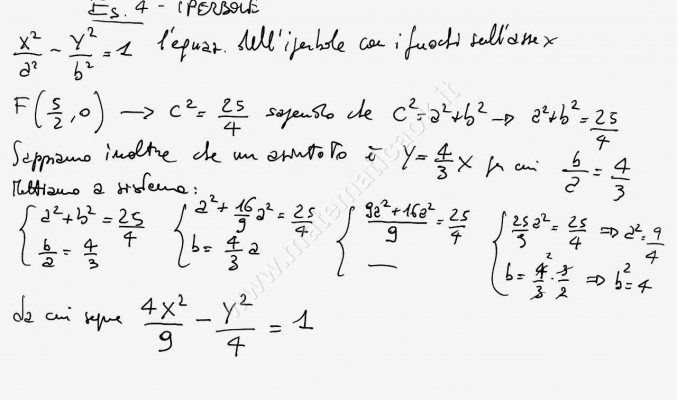 Es. 4 - IPERBOLE
x²/a² - y²/b² = 1 l'equaz. dell'iperbole con i fuochi sull'asse x
F(5/2, 0) → c² = 25/4 sapendo che c² = a² + b² → a² + b² = 25/4
Sappiamo inoltre che un asintoto è y = 4/3 x per cui b/a = 4/3
Mettiamo a sistema:
{ a² + b² = 25/4 { a² + 16/9 a² = 25/4 { 9a² + 16a² / 9 = 25/4 { 25/9 a² = 25/4 ⇒ a² = 9/4
b/a = 4/3 b = 4/3 a — b = 4/3 · 3/2 ⇒ b² = 4
da cui segue 4x²/9 - y²/4 = 1
www.matematicaok.it